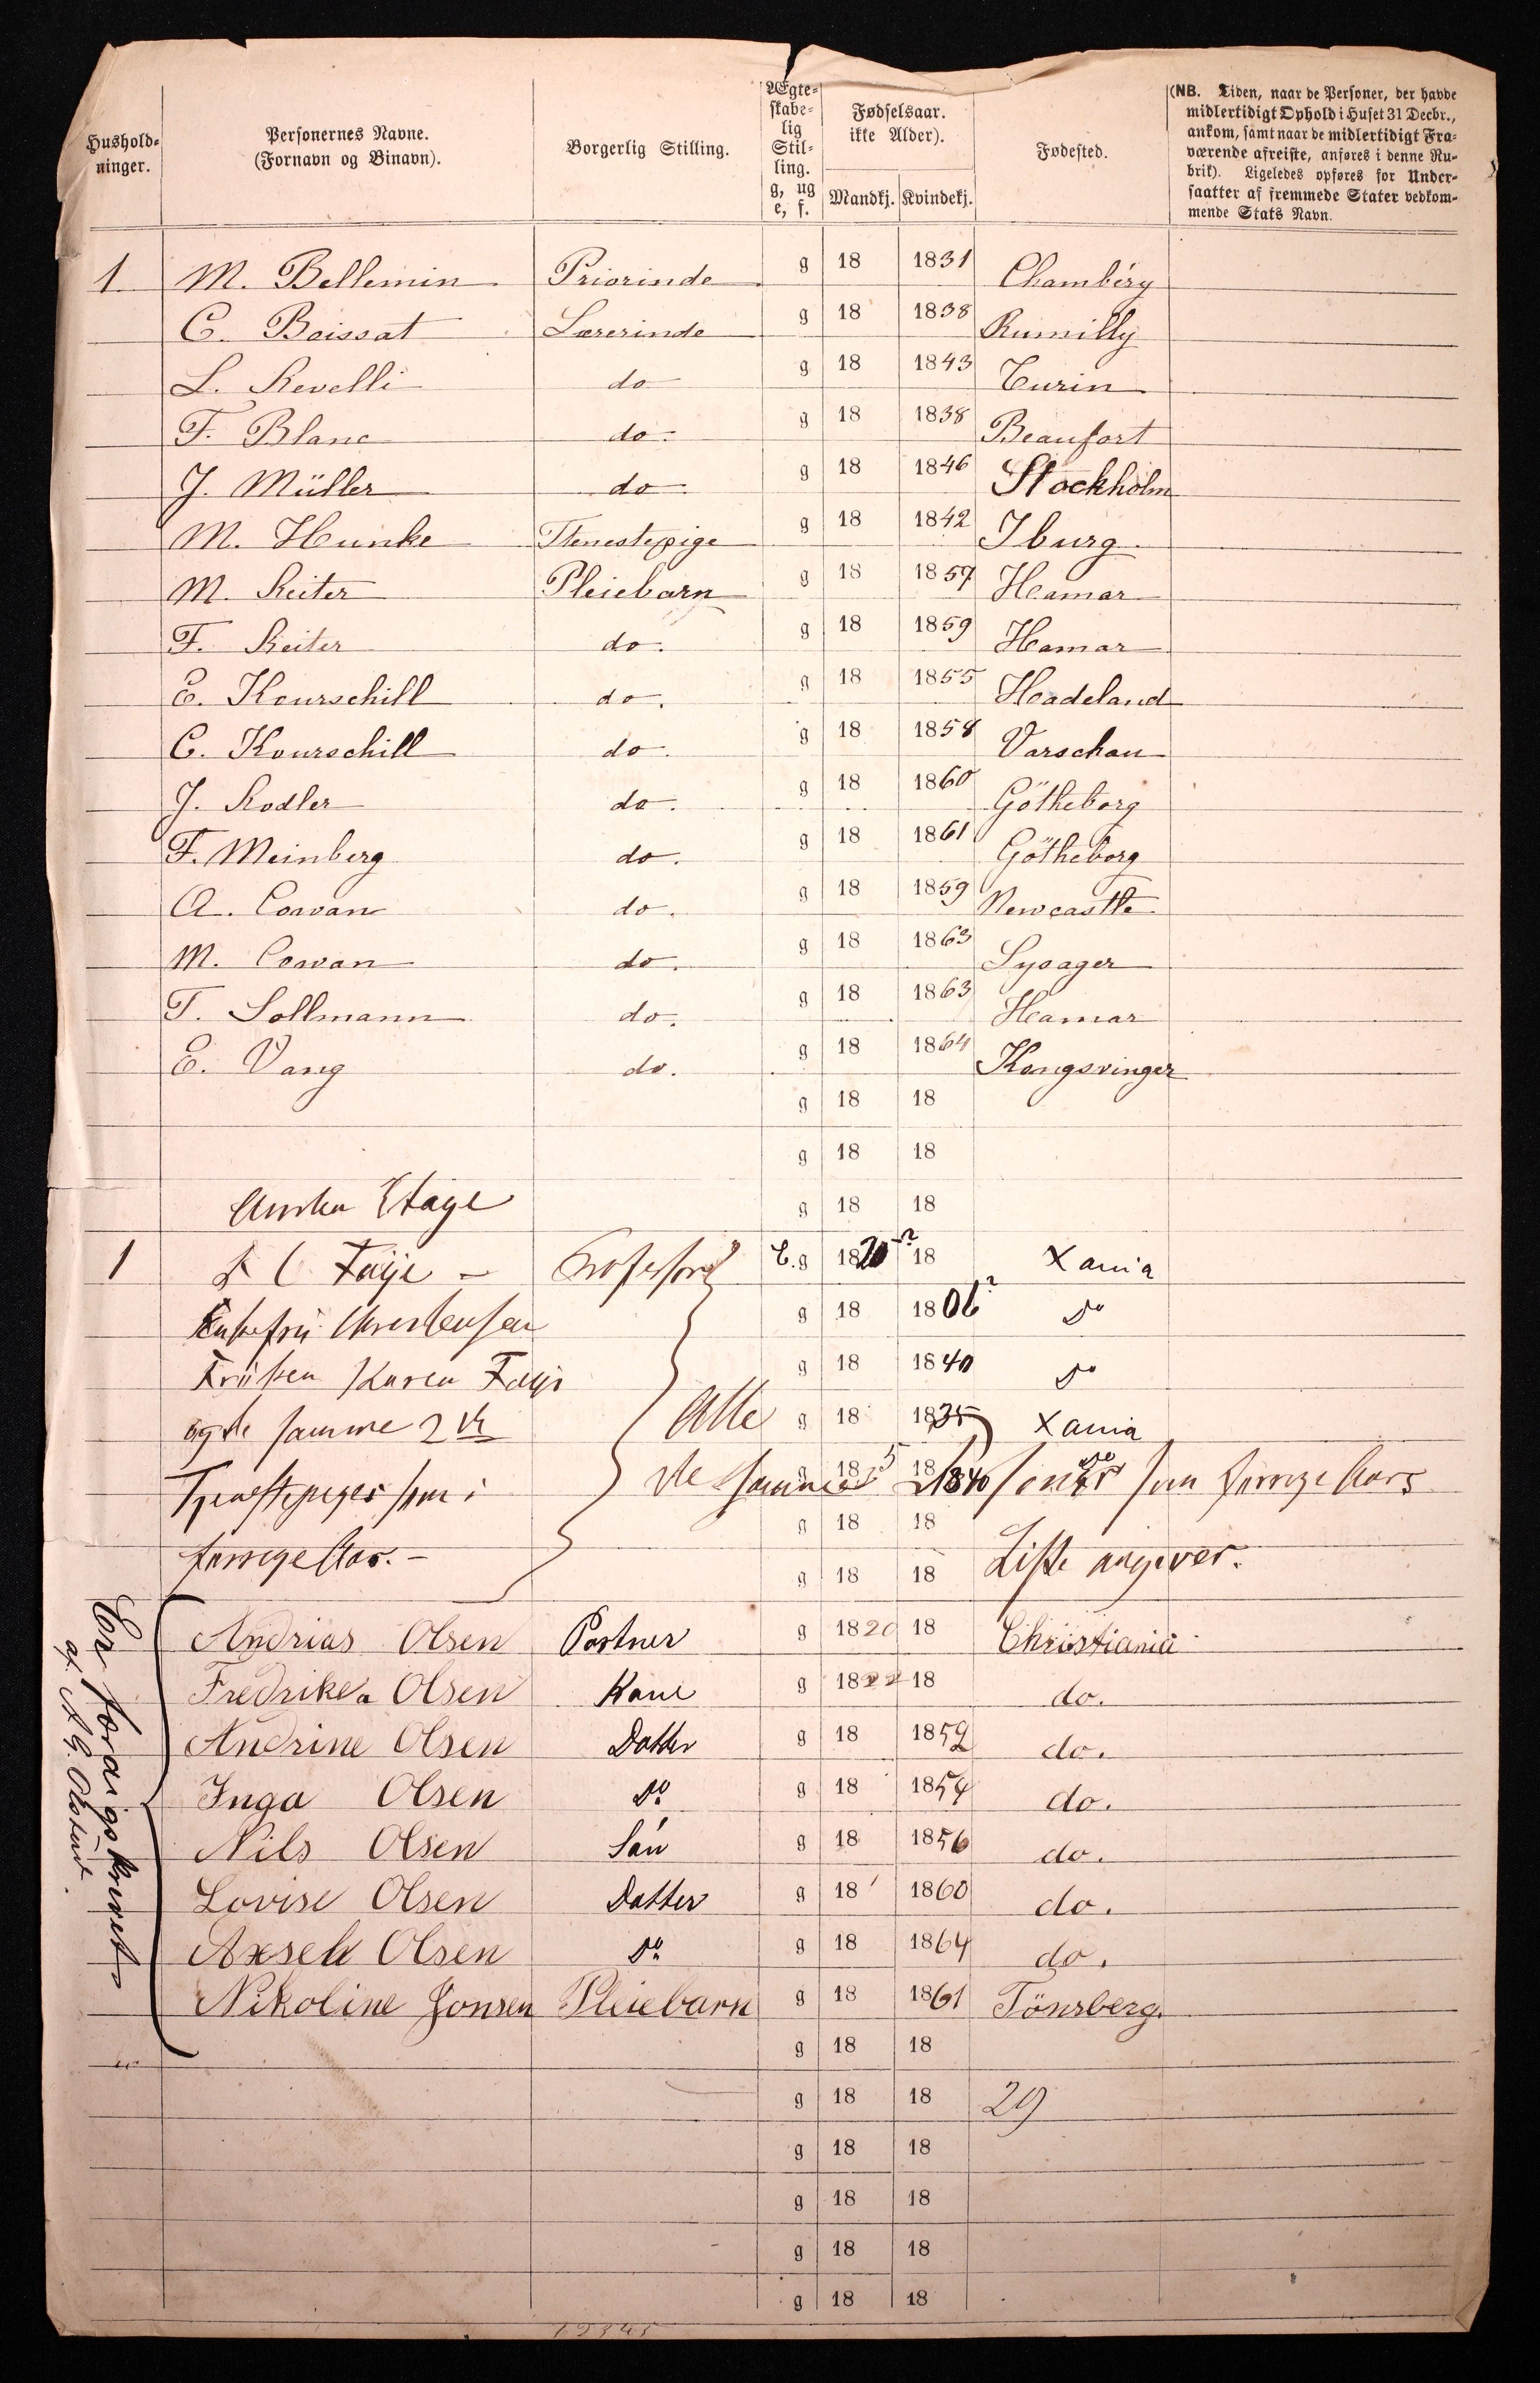 Hushold-
ninger.
Personernes Navne.
(Fornavn og Binavn).
Borgerlig Stilling.
Ægte-
skabe-
lig
Stil-
ling.
g, ug
e, f.
Fødselsaar.
ikke Alder).
Mandkj. Kvindekj.
Fødested.
(NB. Tiden, naar de Personer, der havde
midlertidigt Ophold i Huset 31 Decbr.,
ankom, samt naar de midlertidigt Fra-
værende afreiste, anføres i denne Ru-
brik). Ligeledes opføres for Under-
saatter af fremmede Stater vedkom-
mende Stats Navn.
1 M. Bellemin Priorinde g 18 1831 Chambéry
C. Boissat Lærerinde g 18 1838 Rumilly
L. Revelli do g 18 1843 Turin
F. Blanc do g 18 1838 Beaufort
J. Müller do g 18 1846 Stockholm
M. Hunke Tjenestepige g 18 1842 Iburg
M. Reiter Pleiebarn g 18 1857 Hamar
F. Reiter do. g 18 1859 Hamar
E. Kourschill do. g 18 1855 Hadeland
C. Kourschill do. g 18 1858 Varschau
J. Rodler do. g 18 1860 Götheborg
F. Meinberg do. g 18 1861 Götheborg
A. Cowan do. g 18 1859 Newcastle
M. Cowan do. g 18 1863 Lysager
T. Sollmann do. g 18 1863 Hamar
E. Vang do. g 18 1864 Kongsvinger
g 18 18
g 18 18
Anden Etage g 18 18
1 F C Faye - Professor E. g 1820-? 18 Xania
Enkefru Christensen g 18 1806? Do
Frøken Karen Faye g 18 1840 Do
og de samme 2de Alle g 18 1835 Xania
Tjenestepiger som i de samme g 18 1840 som forrige Aars
g 18 18
forrige Aar. - g 18 18 Liste angiver.
Andrias Olsen Portner g 1820 18 Christiania
Fredrikea Olsen Kone g 1822 18 do.
Andrine Olsen Datter g 18 1852 do.
Inga Olsen Do g 18 1854 do.
Nils Olsen Sön g 18 1856 do.
Lovise Olsen Datter g 18 1860 do.
Axsel Olsen Do g 18 1864 do.
Nikoline Jonsen Pleiebarn g 18 1861 Tönsberg.
Er
af
g 18 18
g 18 18 29
g 18 18
g 18 18
g 18 18
g 18 18
12345